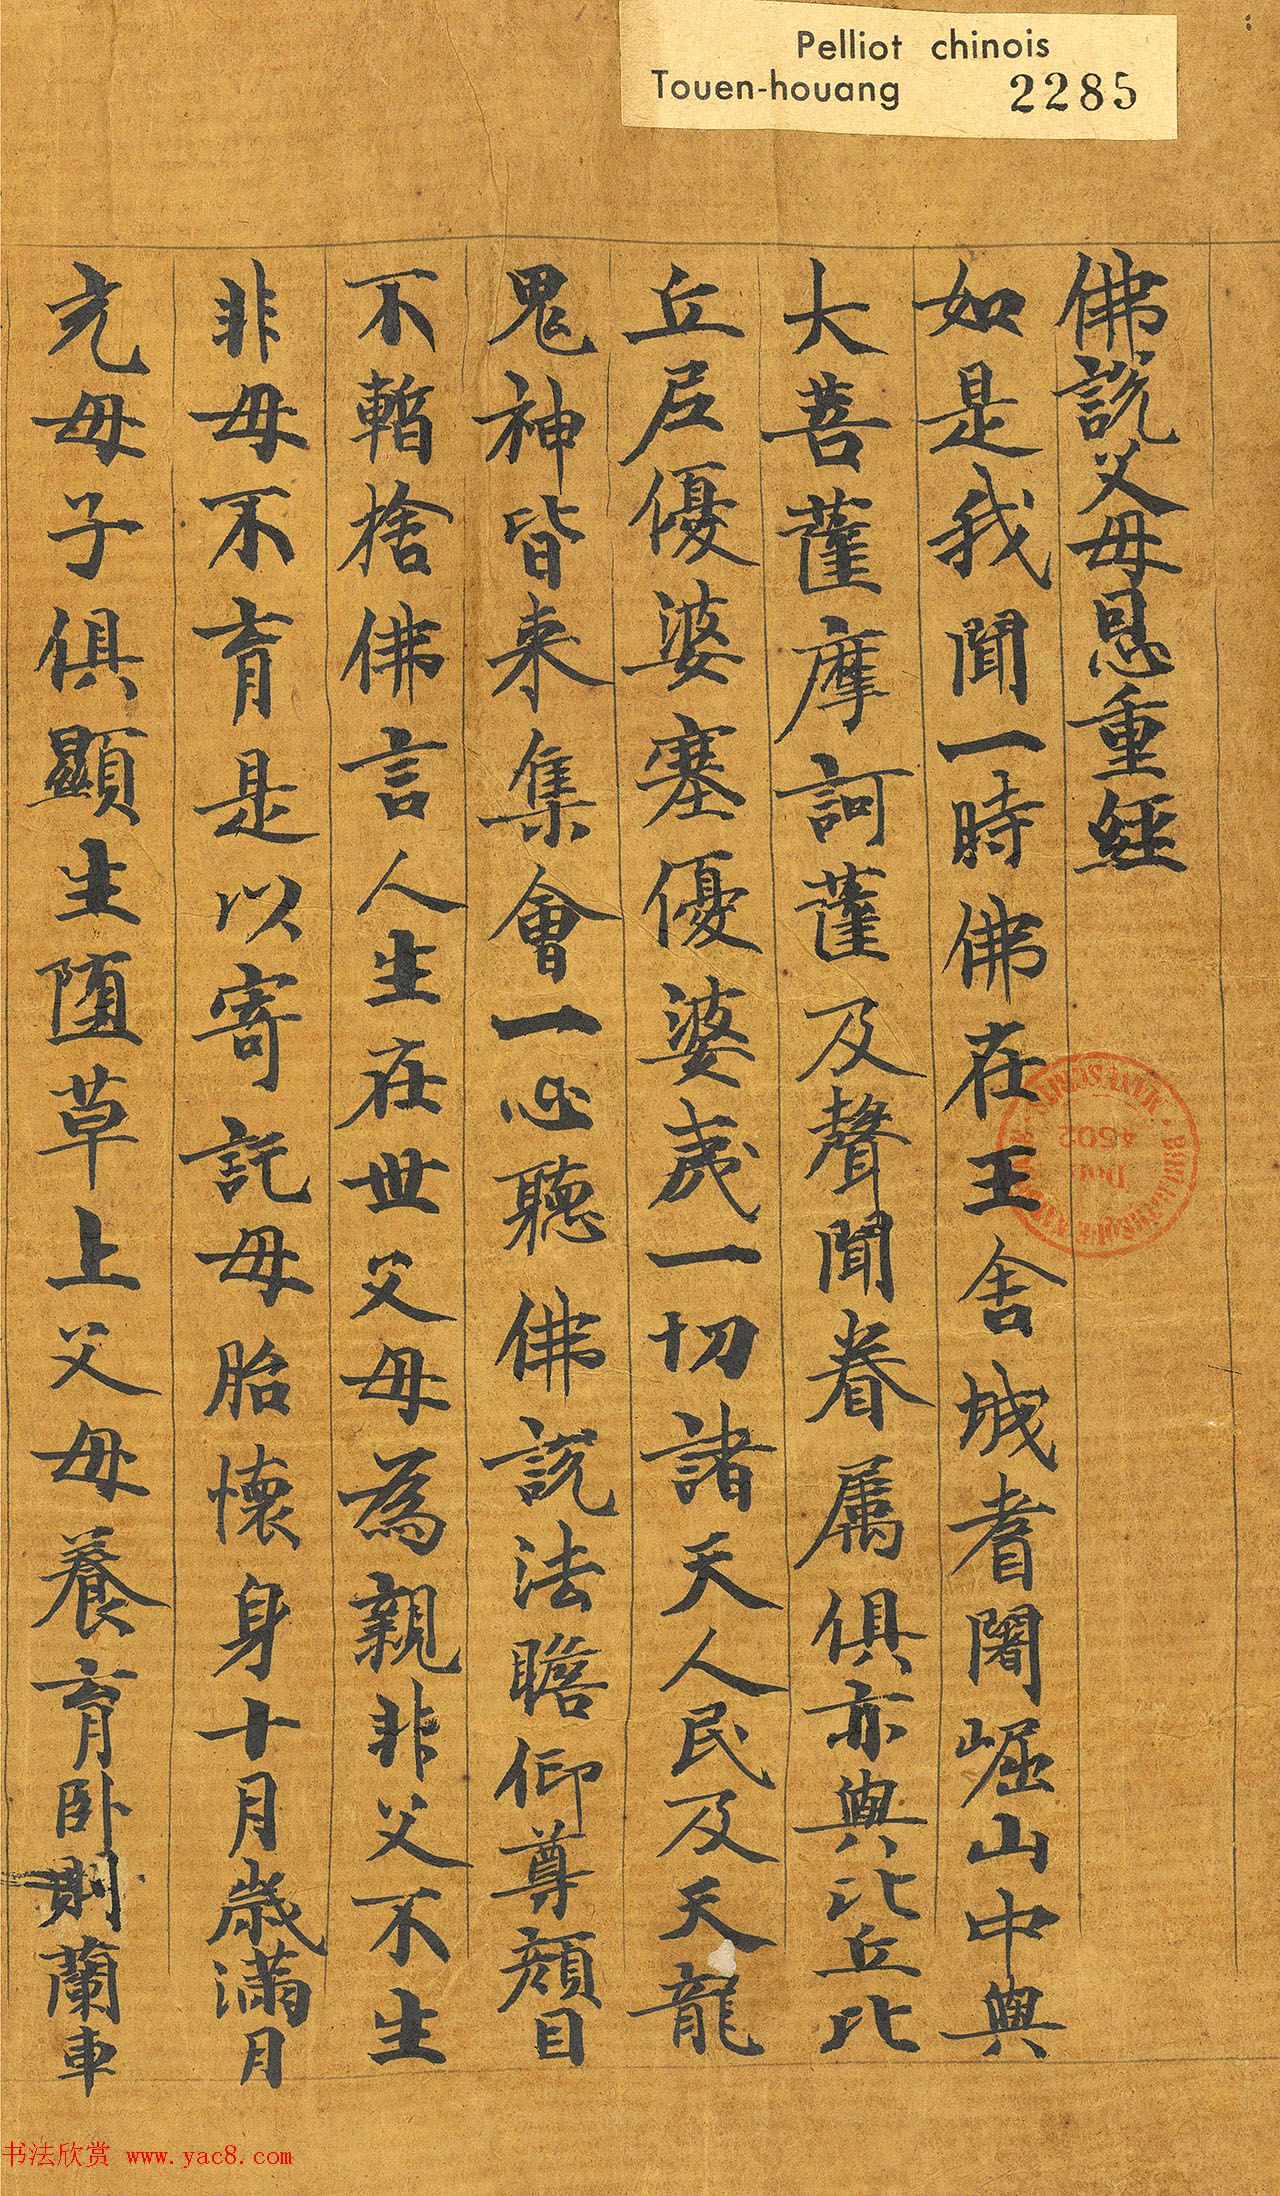 Pelliot chinois
Touen-houang 2285
佛說父母恩重經
如是我聞一時佛在王舍城耆闍崛山中與
大菩薩摩訶薩及聲聞眷属俱亦與比丘比
丘尼優婆塞優婆夷一切諸天人民及天龍
鬼神皆来集會一心聽佛說法瞻仰尊顏目
不暫捨佛言人生在世父母為親非父不生
非母不育是以寄託母胎懷身十月歲滿月
充母子俱顯生墮草上父母養育卧則蘭車
DON
4502
書法欣赏 www.yac8.com